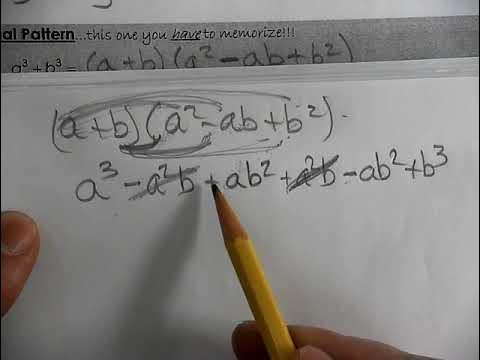 al Pattern...this one you have to memorize!!!
a³ + b³ = (a + b)(a² - ab + b²)
(a + b)(a² - ab + b²).
a³ - a²b + ab² + a²b - ab² + b³